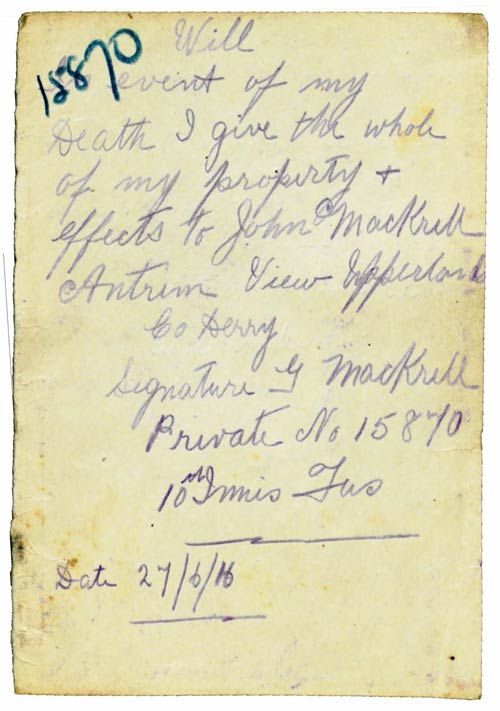 15870
Will
In event of my
Death I give the whole
of my property +
effects to John C MacKrell
Antrim View Upperlands
Co Derry
Signature G MacKrell
Private No 15870
10th Innis Fus
Date 27/6/16